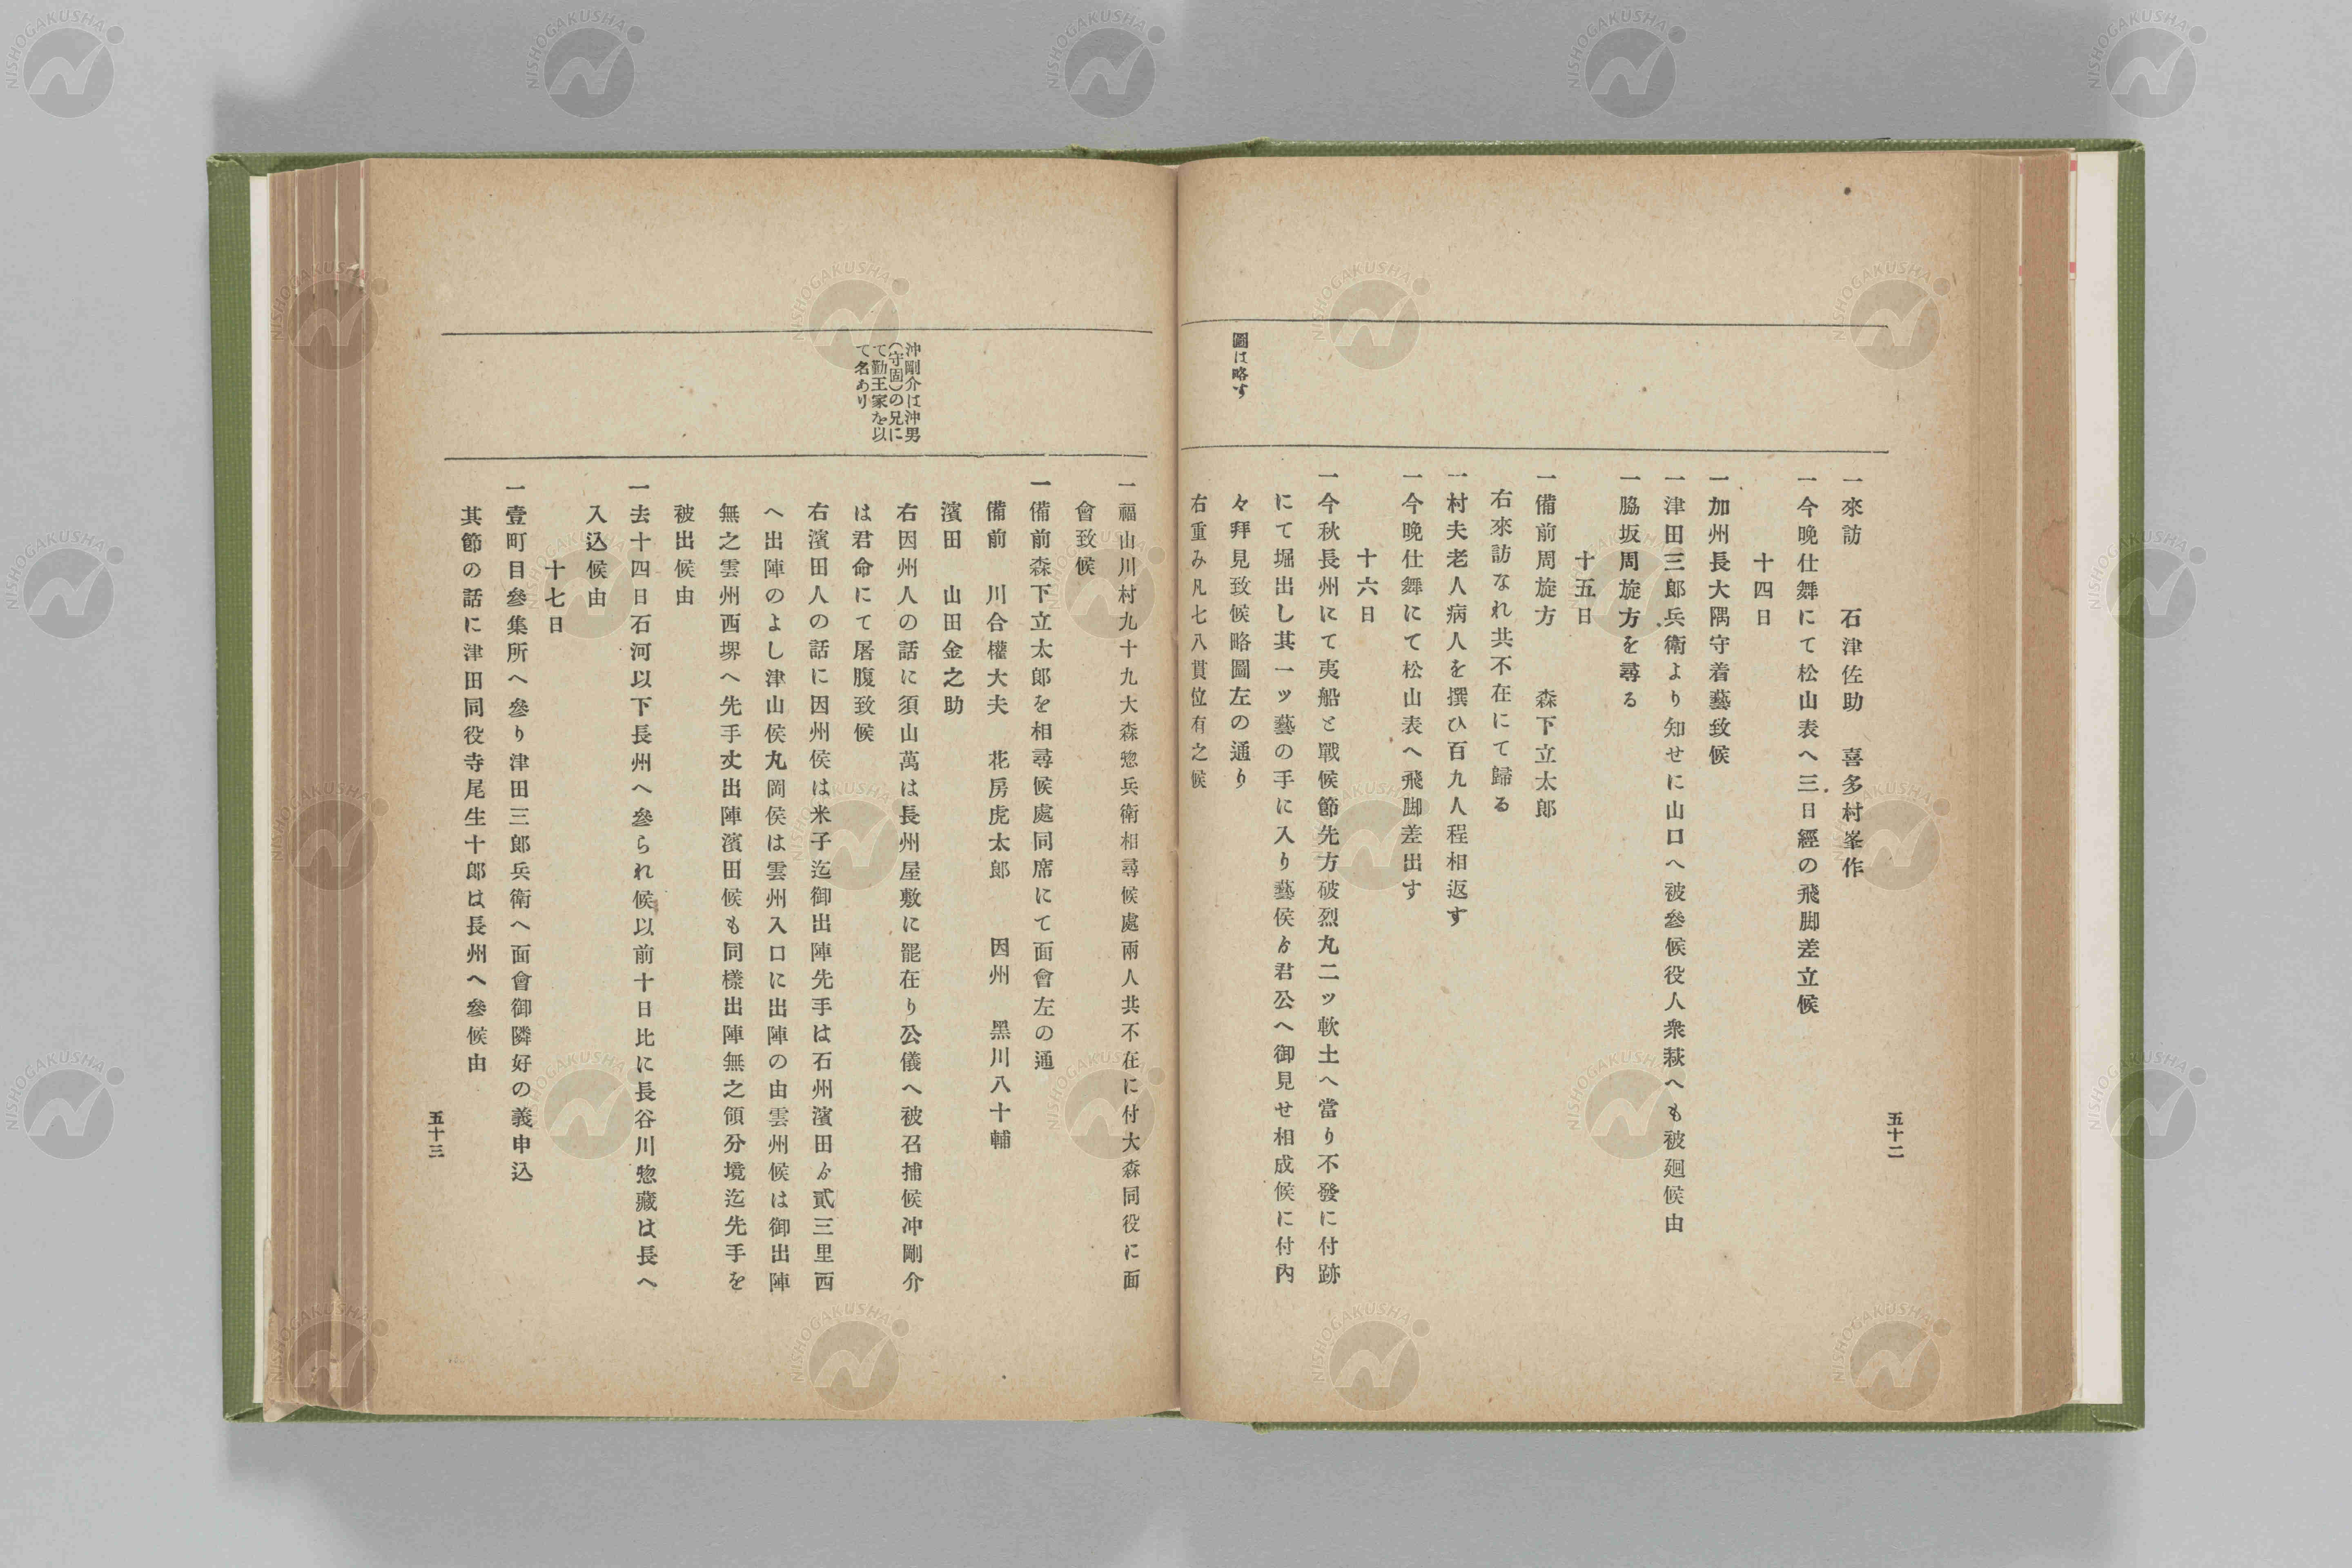 五十二
圖は略す
一來訪　　石津佐助　喜多村峯作
一今晚仕舞にて松山表へ三日經の飛脚差立候
十四日
一加州長大隅守着藝致候
一津田三郎兵衛より知せに山口へ被參候役人衆萩へも被廻候由
一脇坂周旋方を尋る
十五日
一備前周旋方　　森下立太郎
右來訪なれ共不在にて歸る
一村夫老人病人を撰ひ百九人程相返す
一今晚仕舞にて松山表へ飛脚差出す
十六日
一今秋長州にて夷船と戰候節先方破烈丸二ッ軟土へ當り不發に付跡
にて堀出し其一ッ藝の手に入り藝侯ゟ君公へ御見せ相成候に付內
々拜見致候略圖左の通り
右重み凡七八貫位有之候
沖剛介は沖男
（守固）の兄に
て勤王家を以
て名あり
一福山川村九十九大森惣兵衛相尋候處兩人共不在に付大森同役に面
會致候
一備前森下立太郎を相尋候處同席にて面會左の通
備前　川合權大夫　花房虎太郎　　因州　黑川八十輔
濱田　山田金之助
右因州人の話に須山萬は長州屋敷に罷在り公儀へ被召捕候沖剛介
は君命にて屠腹致候
右濱田人の話に因州侯は米子迄御出陣先手は石州濱田ゟ貳三里西
へ出陣のよし津山侯丸岡侯は雲州入口に出陣の由雲州候は御出陣
無之雲州西堺へ先手𠀋出陣濱田候も同樣出陣無之領分境迄先手を
被出候由
一去十四日石河以下長州へ參られ候以前十日比に長谷川惣藏は長へ
入込候由
十七日
一壹町目參集所へ參り津田三郎兵衛へ面會御隣好の義申込
其節の話に津田同役寺尾生十郎は長州へ參候由
五十三
NISHOGAKUSHA